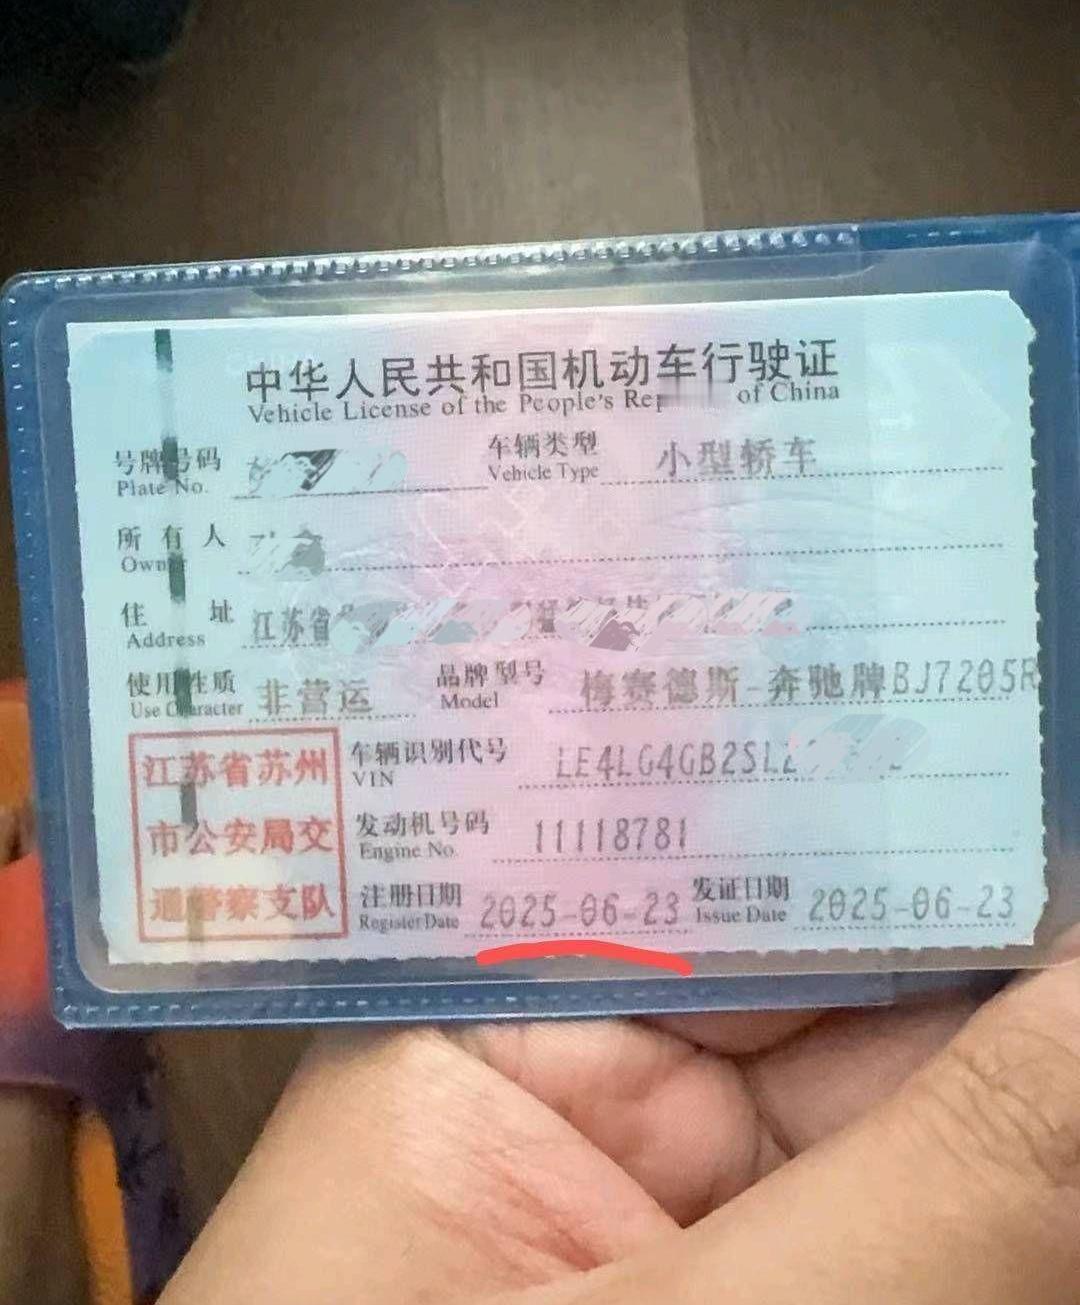 中华人民共和国机动车行驶证
Vehicle License of the People's Rep of China
号牌号码 车辆类型 小型轿车
Plate No. Vehicle Type
所有人
Owner
住址 江苏省
Address
使用性质 非营运 品牌型号 梅赛德斯-奔驰牌BJ7205R
Use Character Model
江苏省苏州 车辆识别代号 LE4LG4GB2SL
VIN
市公安局交 发动机号码 11118781
Engine No.
通警察支队 注册日期 2025-06-23 发证日期 2025-06-23
Register Date Issue Date